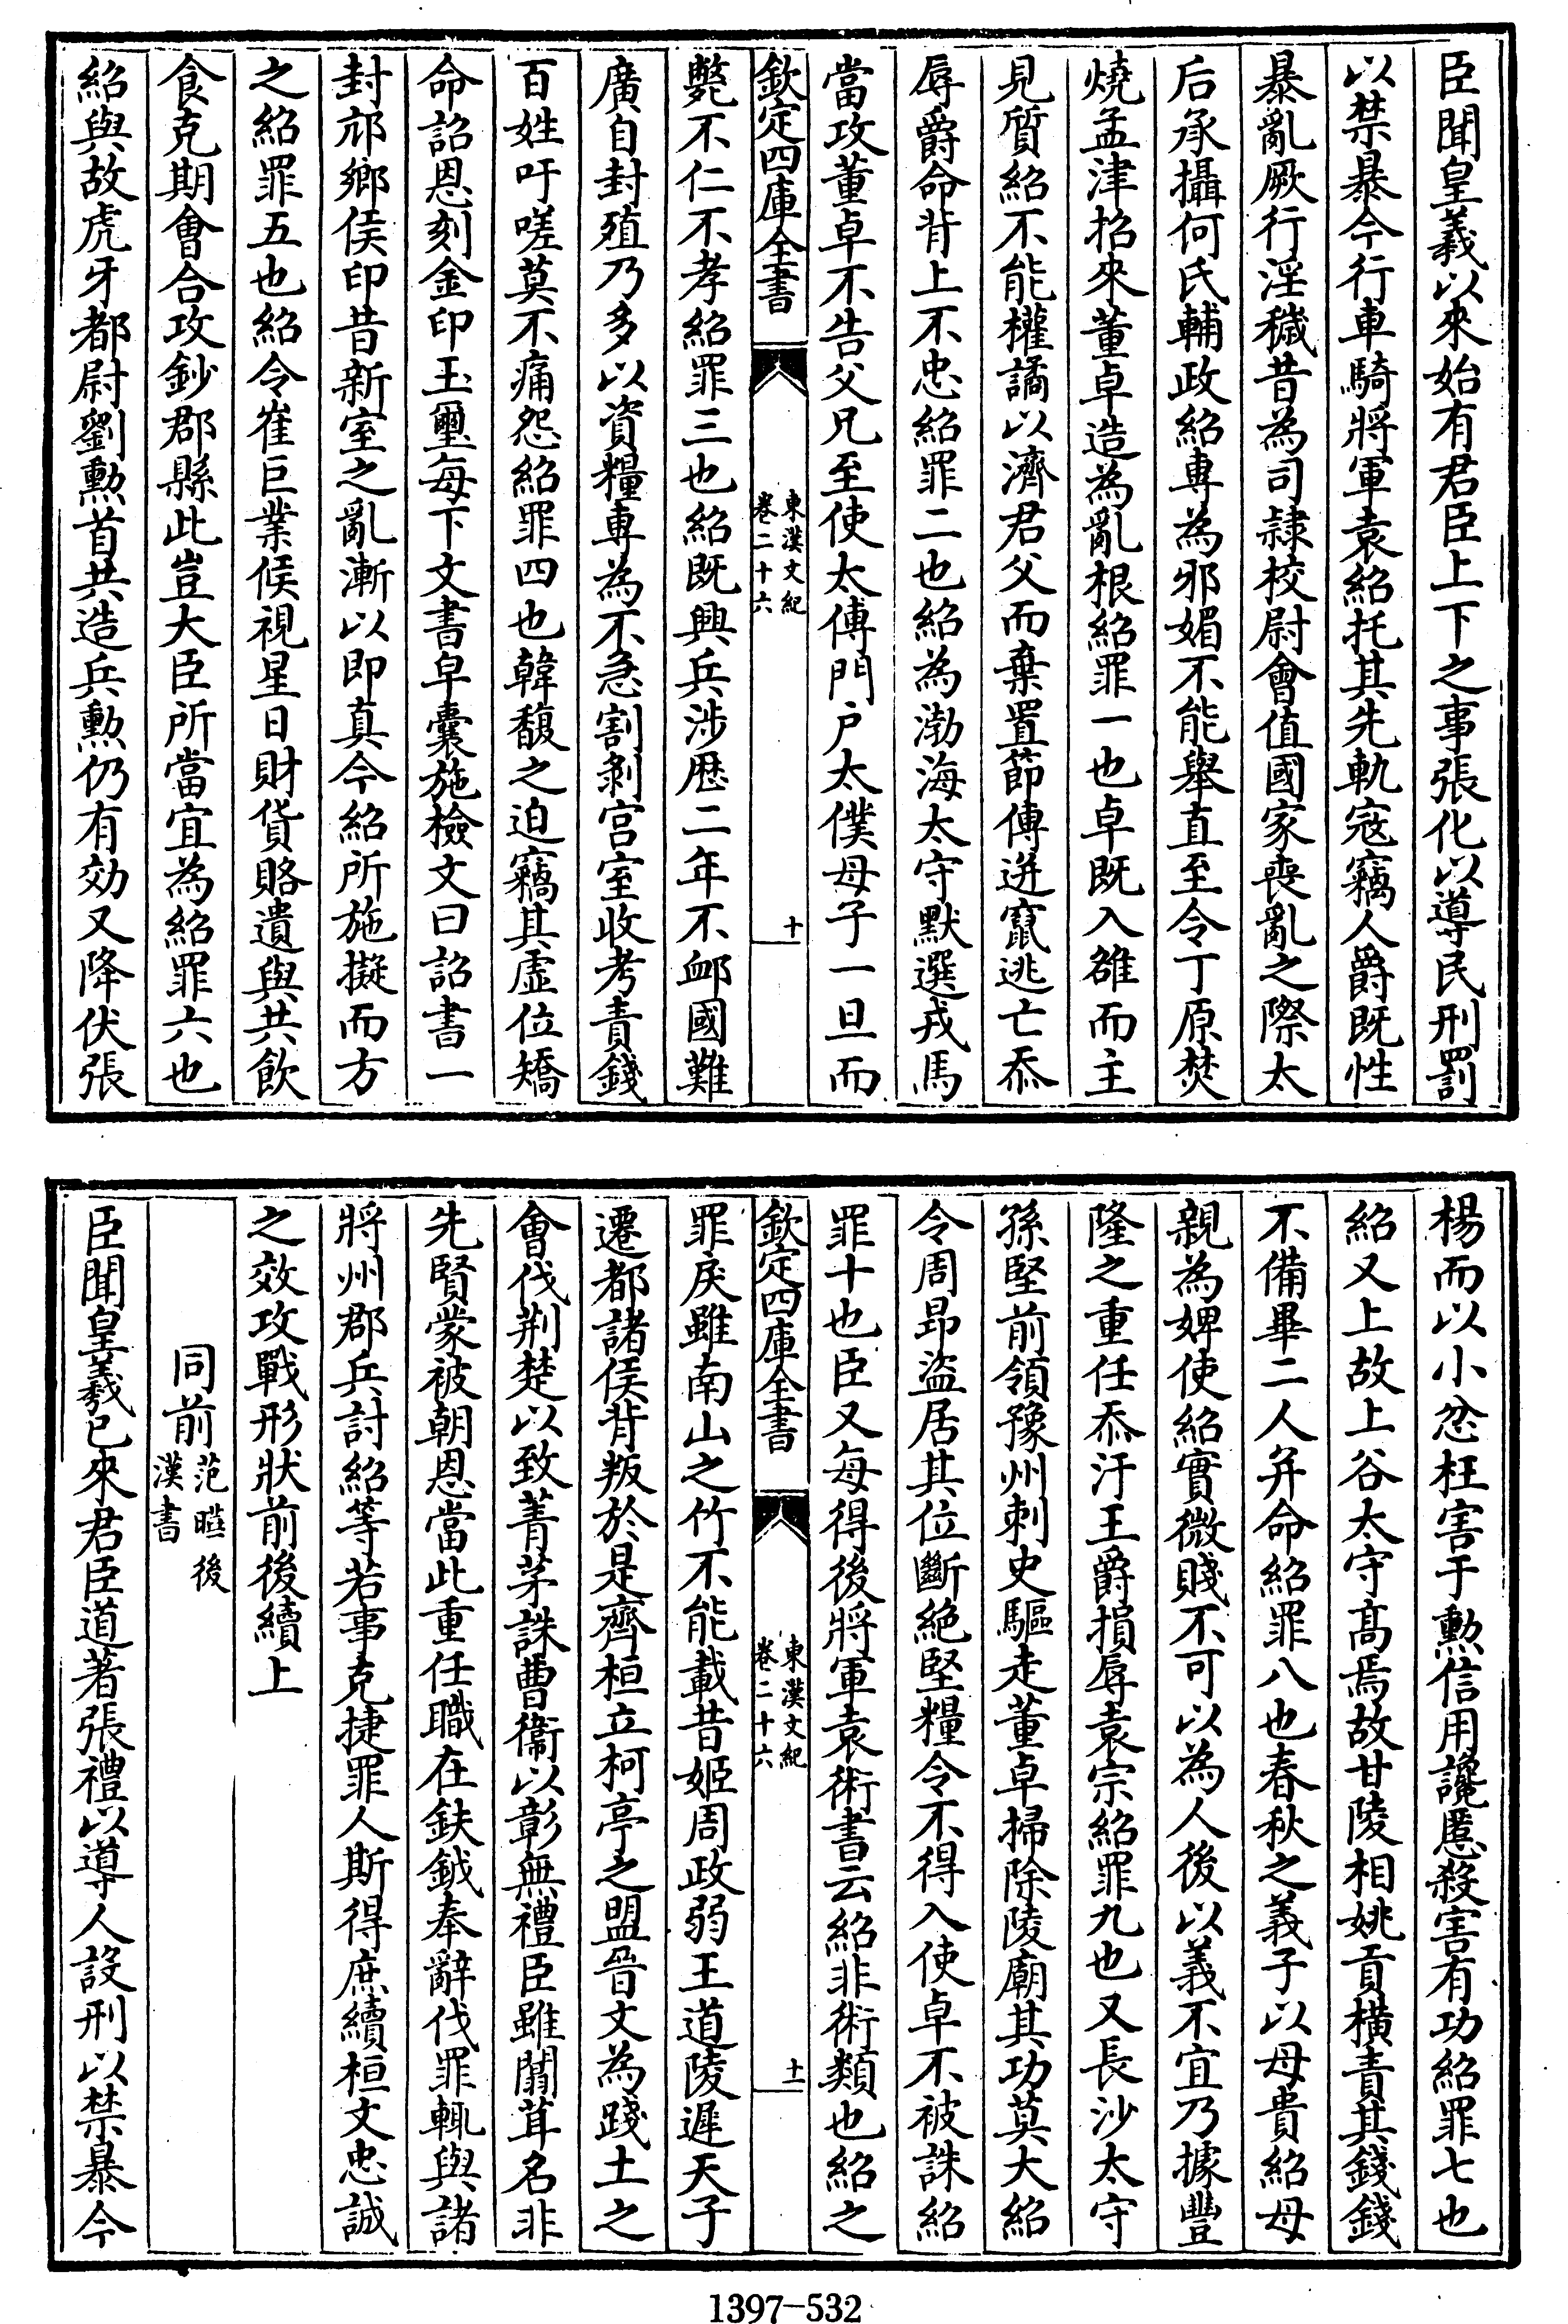 臣聞皇羲以來始有君臣上下之事張化以導民刑罰
以禁暴今行車騎將軍袁紹托其先軌寇竊人爵既性
暴亂厥行淫穢昔為司隷校尉會值國家喪亂之際太
后承攝何氏輔政紹専為邪媚不能舉直至令丁原焚
燒孟津招來董卓造為亂根紹罪一也卓既入雒而主
見質紹不能權譎以濟君父而棄置節傳迸竄逃亡忝
辱爵命背上不忠紹罪二也紹為渤海太守默選戎馬
當攻董卓不告父兄至使太傅門户太僕母子一旦而
欽定四庫全書
東漢文紀
卷二十六
十
斃不仁不孝紹罪三也紹既興兵涉歴二年不䘏國難
廣自封殖乃多以資糧専為不急割剝宫室收考責錢
百姓吁嗟莫不痛怨紹罪四也韓馥之迫竊其虚位矯
命詔恩刻金印玉璽每下文書皁囊施檢文曰詔書一
封邟鄉侯印昔新室之亂漸以即真今紹所施擬而方
之紹罪五也紹令崔巨業候視星日財貨賂遺與共飲
食克期會合攻鈔郡縣此豈大臣所當宜為紹罪六也
紹與故虎牙都尉劉勲首共造兵勲仍有効又降伏張
楊而以小忿枉害于勲信用讒慝殺害有功紹罪七也
紹又上故上谷太守髙焉故甘陵相姚貢横責其錢錢
不備畢二人并命紹罪八也春秋之義子以母貴紹母
親為婢使紹實微賤不可以為人後以義不宜乃據豐
隆之重任忝汙王爵損辱袁宗紹罪九也又長沙太守
孫堅前領豫州刺史驅走董卓掃除陵廟其功莫大紹
令周昂盜居其位斷絶堅糧令不得入使卓不被誅紹
罪十也臣又每得後將軍袁術書云紹非術類也紹之
欽定四庫全書
東漢文紀
卷二十六
十一
罪戾雖南山之竹不能載昔姬周政弱王道陵遲天子
遷都諸侯背叛於是齊桓立柯亭之盟晉文為踐土之
會伐荆楚以致菁茅誅曹衞以彰無禮臣雖闒茸名非
先賢蒙被朝恩當此重任職在鈇鉞奉辭伐罪輒與諸
將州郡兵討紹等若事克捷罪人斯得庶續桓文忠誠
之效攻戰形狀前後續上
同前范曄後
漢書
臣聞皇羲已來君臣道著張禮以導人設刑以禁暴今
1397-532